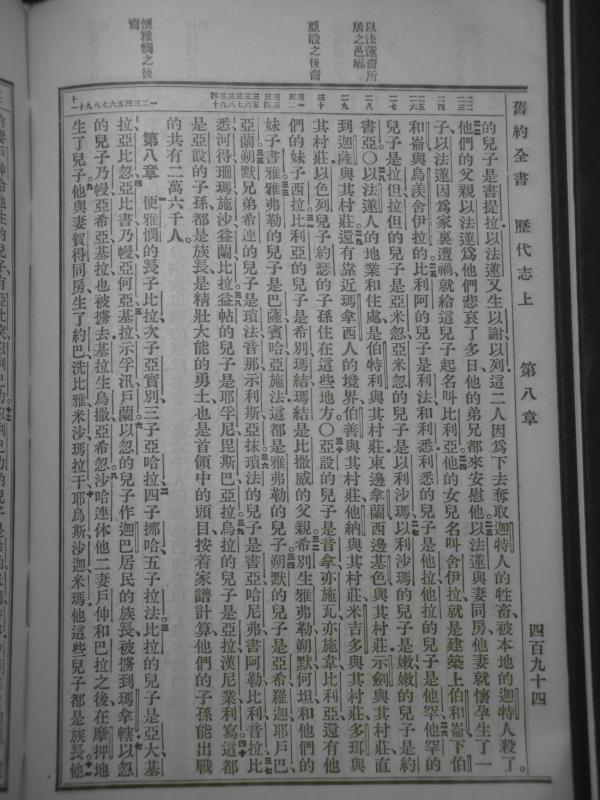 以法蓮裔所
居之邑鄉
亞設之後裔
便雅憫之後
裔
舊約全書 歷代志上 第八章 四百九十四
的兒子是書提拉以法蓮又生以謝以列這二人因為下去奪取迦特人的牲畜被本地的迦特人殺了。
他們的父親以法蓮為他們悲哀了多日他的弟兄都來安慰他以法蓮與妻同房他妻就懷孕生了一
子以法蓮因為家裏遭禍就給這兒子起名叫比利亞他的女兒名叫舍伊拉就是建築上伯和崙下伯
和崙與烏羨舍伊拉的比利阿的兒子是利法和利悉利悉的兒子是他拉他拉的兒子是他罕他罕的
兒子是拉但拉但的兒子是亞米忽亞米忽的兒子是以利沙瑪以利沙瑪的兒子是嫩嫩的兒子是約
書亞〇以法蓮人的地業和住處是伯特利與其村莊東邊拿蘭西邊基色與其村莊示劍與其村莊直
到迦薩與其村莊還有靠近瑪拿西人的境界伯善與其村莊他納與其村莊米吉多與其村莊多珥與
其村莊以色列兒子約瑟的子孫住在這些地方〇亞設的兒子是音拿亦施瓦亦施韋比利亞還有他
們的妹子西拉比利亞的兒子是希別瑪結瑪結是比撒威的父親希別生雅弗勒朔默何坦和他們的
妹子書雅雅弗勒的兒子是巴薩賓哈亞施法這都是雅弗勒的兒子朔默的兒子是亞希羅迦耶戶巴
亞蘭朔默兄弟希連的兒子是瑣法音那示利斯亞抹瑣法的兒子是書亞哈尼弗書阿勒比利音拉比
悉河得珊瑪施沙益蘭比拉益帖的兒子是耶孚尼毘斯巴亞拉烏拉的兒子是亞拉漢尼業利寫這都
是亞設的子孫都是族長是精壯大能的勇士也是首領中的頭目按着家譜計算他們的子孫能出戰
的共有二萬六千人。
第八章 便雅憫的長子比拉次子亞實別三子亞哈拉四子挪哈五子拉法比拉的兒子是亞大基
拉亞比忽亞比書乃幔亞何亞基拉示孚汛戶蘭以忽的兒子作迦巴居民的族長被擄到瑪拿轄以忽
的兒子乃幔亞希亞基拉也被擄去基拉生烏撒亞希忽沙哈連休他二妻戶伸和巴拉之後在摩押地
生了兒子他與妻賀得同房生了約巴洗比雅米沙瑪拉干耶烏斯沙迦米瑪他這些兒子都是族長他